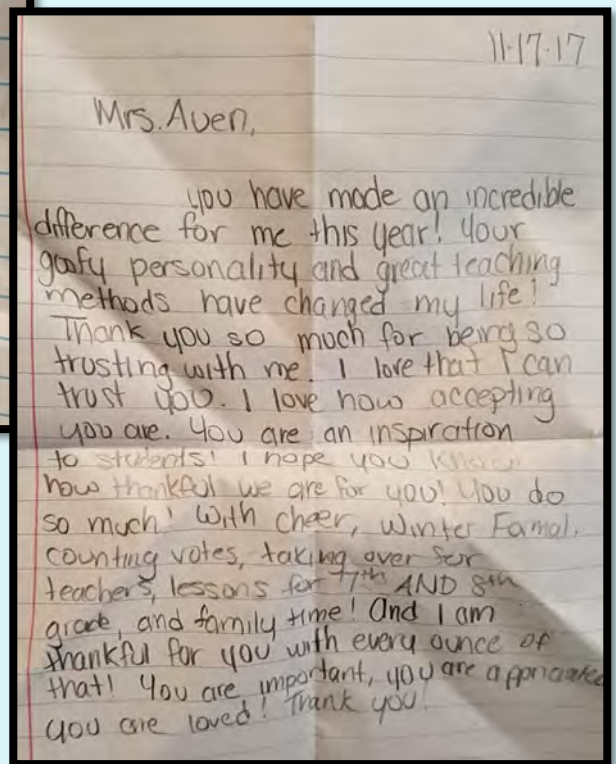 11-17-17
Mrs. Aven,
you have made an incredible
difference for me this year! Your
goofy personality and great teaching
methods have changed my life!
Thank you so much for being so
trusting with me. I love that I can
trust you. I love how accepting
you are. You are an inspiration
to students! I hope you know
how thankful we are for you! You do
so much! With cheer, Winter Formal,
counting votes, taking over for
teachers, lessons for 7th AND 8th
grade, and family time! And I am
thankful for you with every ounce of
that! You are important, you are appriciated
you are loved! Thank you!